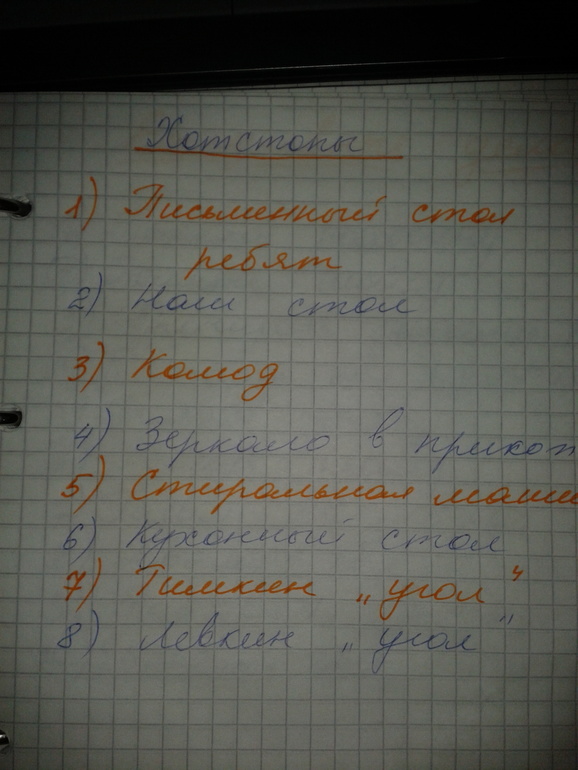 Хотспоты
1) Письменный стол
ребят
2) Наш стол
3) Комод
4) Зеркало в прихо
5) Стиральная маши
6) Кухонный стол
7) Тимкин „угол“
8) Левкин „угол“